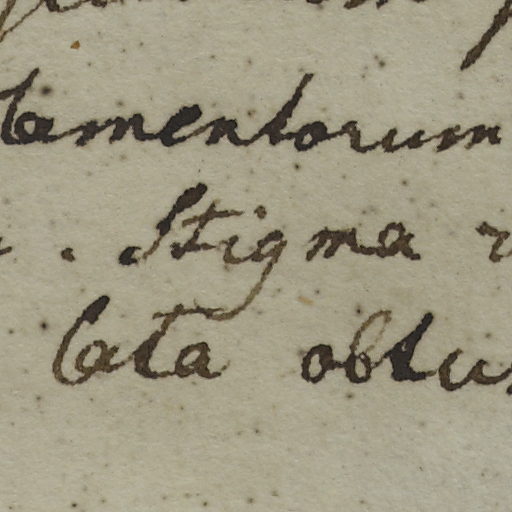 lamentorum
. Stigma
lata obtu